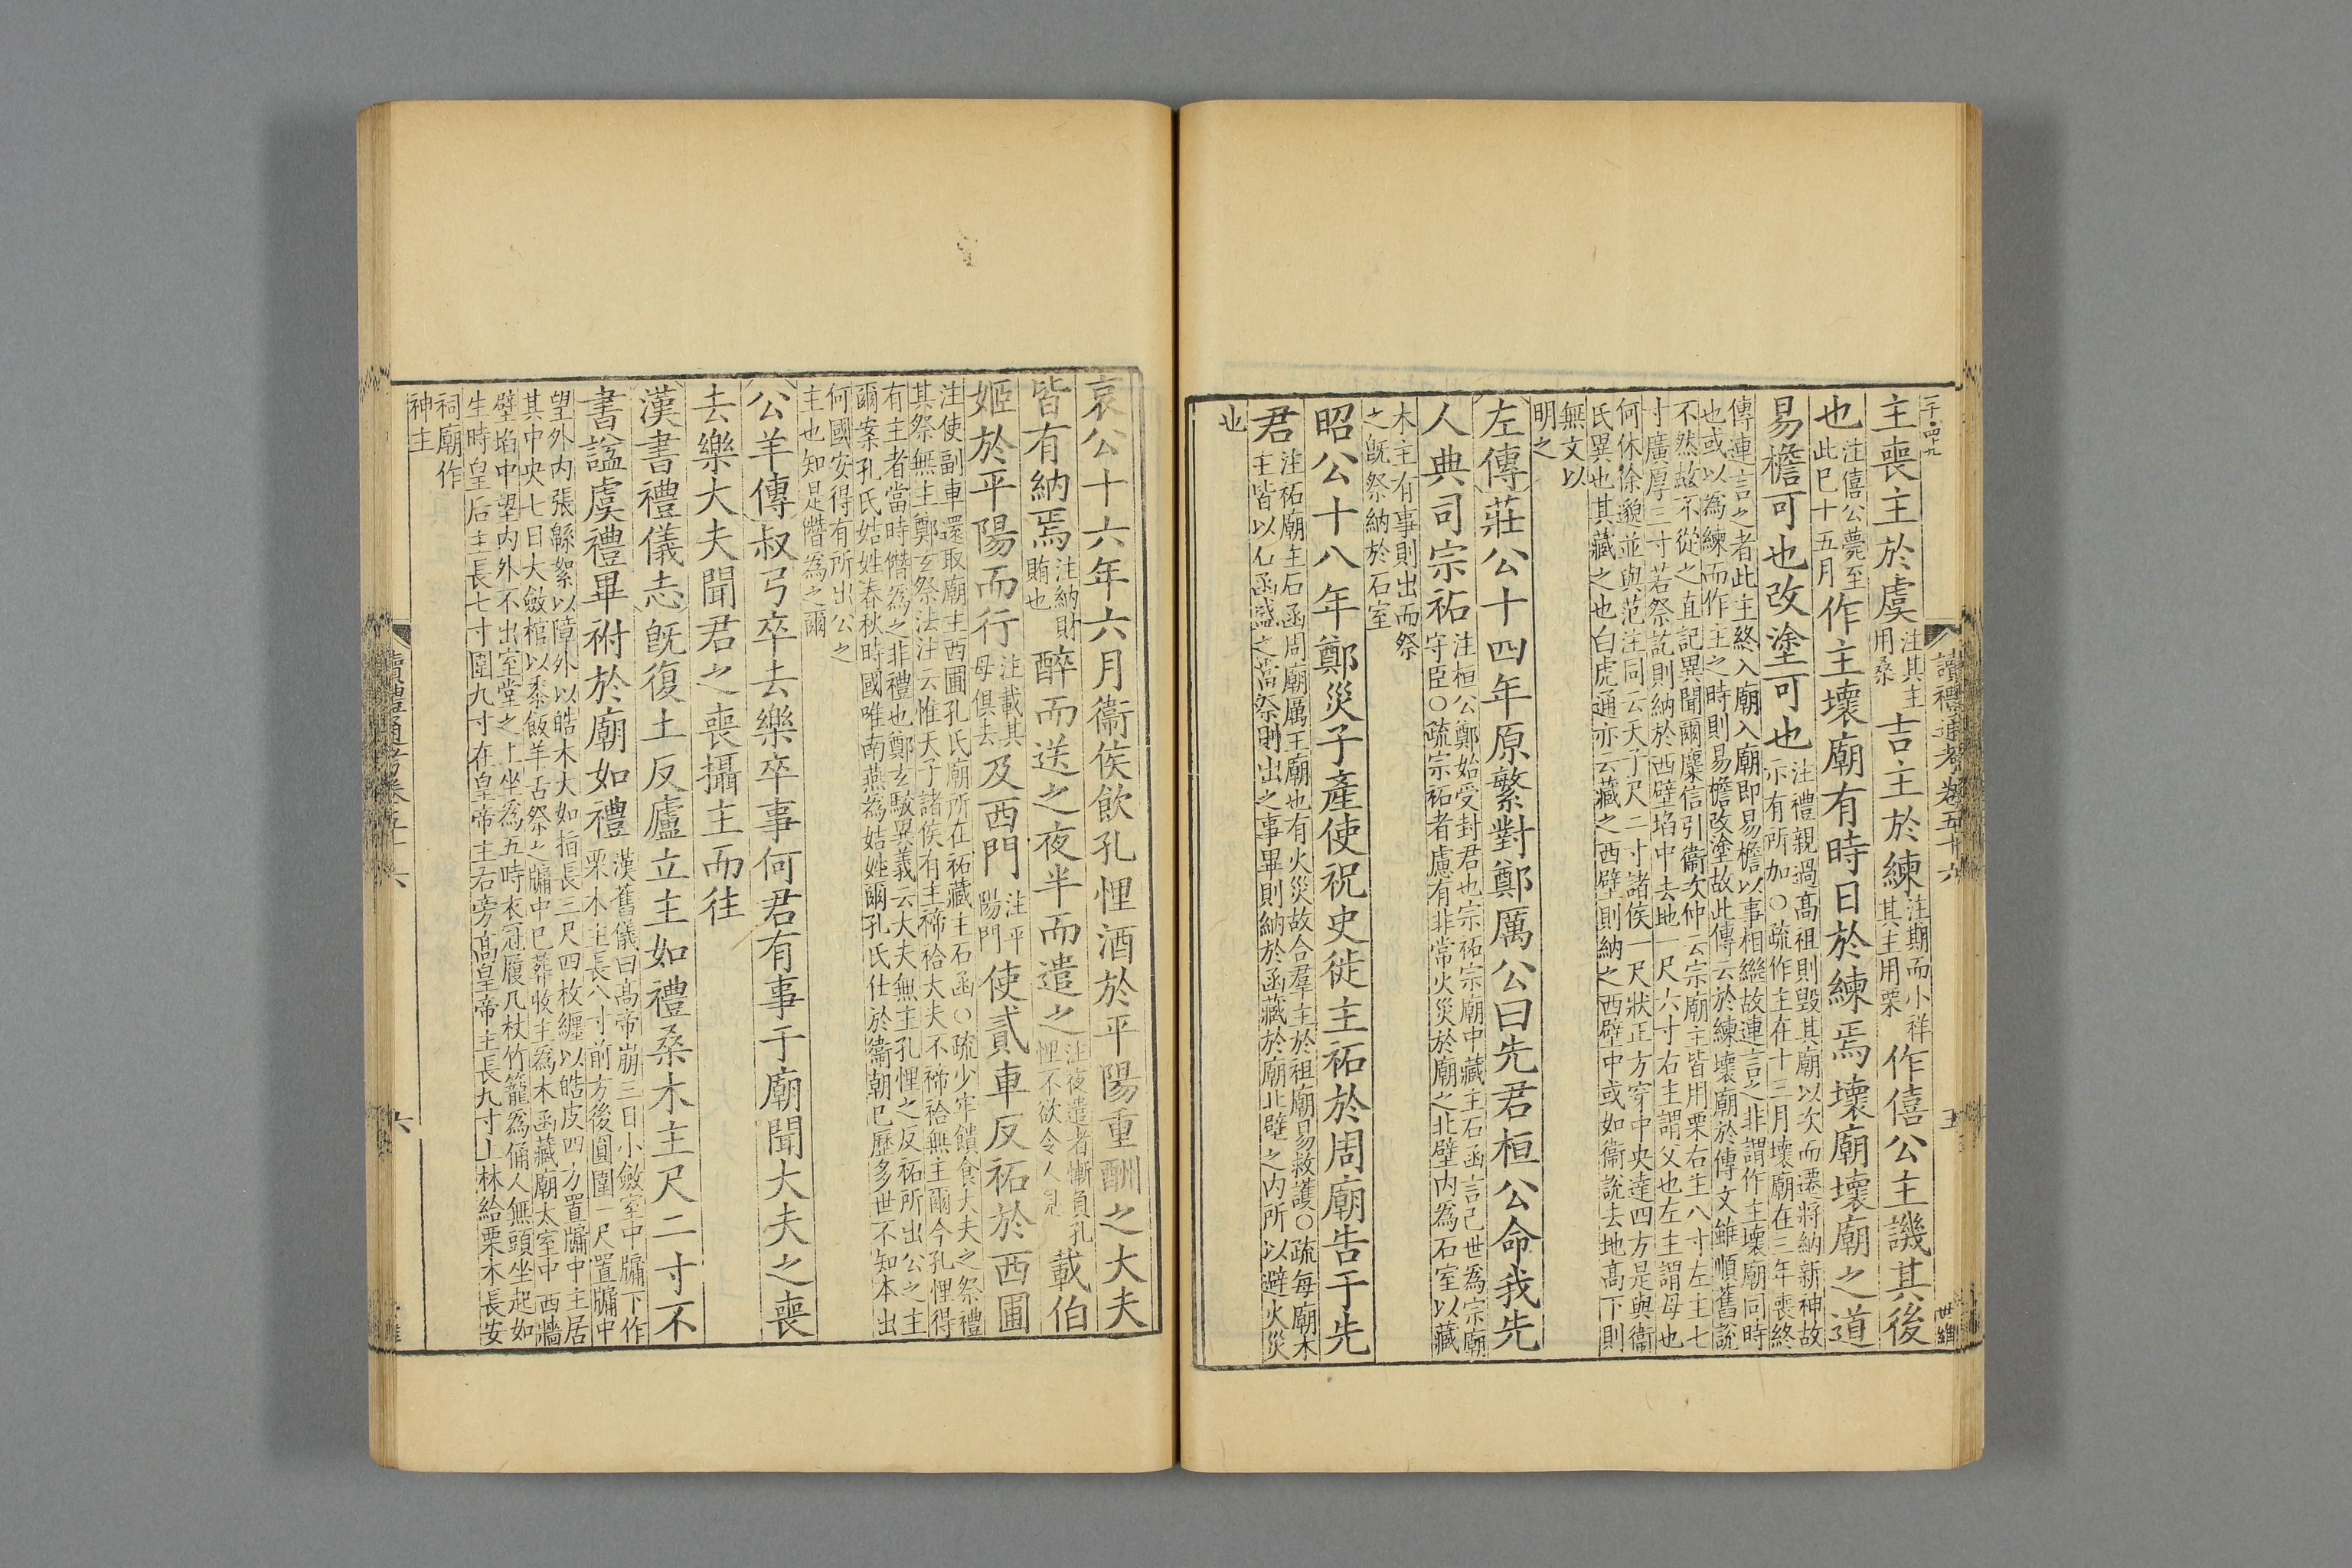 二千四十九
讀禮通考卷五十六
五
世維
主喪主於虞注其主用桑吉主於練注期而小祥其主用栗作僖公主譏其後
也注僖公薨至此巳十五月作主壞廟有時日於練焉壞廟壞廟之道
易檐可也改塗可也注禮親過髙祖則毀其廟以次而遷將納新神故示有所加○疏作主在十三月壞廟在三年喪終
傳連言之者此主終入廟入廟即易檐以事相繼故連言之非謂作主壞廟同時
也或以為練而作主之時則易檐改塗故此傳云於練壞廟於傳文雖順舊說
不然故不從之直記異聞爾麋信引衞次仲云宗廟主皆用栗右主八寸左主七
寸廣厚三寸若祭訖則納於西壁埳中去地一尺六寸右主謂父也左主謂母也
何休徐邈並與范注同云天子尺二寸諸侯一尺狀正方穿中央達四方是與衞
氏異也其藏之也白虎通亦云藏之西壁則納之西壁中或如衞說去地髙下則
無文以
明之
左傳莊公十四年原繁對鄭厲公曰先君桓公命我先
人典司宗祏注桓公鄭始受封君也宗祏宗廟中藏主石函言己世為宗廟守臣○疏宗祏者慮有非常火災於廟之北壁内為石室以藏
木主有事則出而祭
之旣祭納於石室
昭公十八年鄭災子產使祝史徙主祏於周廟告于先
君注祏廟主石函周廟厲王廟也有火災故合羣主於祖廟易救護○疏每廟木主皆以石函盛之當祭則出之事畢則納於函藏於廟北壁之内所以避火災
也
哀公十六年六月衞侯飲孔悝酒於平陽重酬之大夫
皆有納焉注納財賄也醉而送之夜半而遣之注夜遣者慚負孔悝不欲令人見載伯
姬於平陽而行注載其母俱去及西門注平陽門使貳車反祏於西圃
注使副車還取廟主西圃孔氏廟所在祏藏主石函○疏少牢饋食大夫之祭禮
其祭無主鄭玄祭法注云惟天子諸侯有主禘祫大夫不禘祫無主爾今孔悝得
有主者當時僭為之非禮也鄭玄駮異義云大夫無主孔悝之反祏所出公之主
爾案孔氏姞姓春秋時國唯南燕為姞姓爾孔氏仕於衞朝巳歷多世不知本出
何國安得有所出公之
主也知是僭為之爾
公羊傳叔弓卒去樂卒事何君有事于廟聞大夫之喪
去樂大夫聞君之喪攝主而往
漢書禮儀志旣復土反廬立主如禮桑木主尺二寸不
書諡虞禮畢祔於廟如禮漢舊儀曰高帝崩三日小斂室中牖下作栗木主長八寸前方後圓圍一尺置牖中
望外内張緜絮以障外以皓木大如指長三尺四枚纏以皓皮四方置牖中主居
其中央七日大斂棺以黍飯羊舌祭之牖中已葬收主為木函藏廟太室中西牆
壁埳中望内外不出室堂之上坐為五時衣冠履几杖竹籠為俑人無頭坐起如
生時皇后主長七寸圍九寸在皇帝主右旁髙皇帝主長九寸上林給栗木長安
祠廟作
神主
讀禮通考卷五十六
六